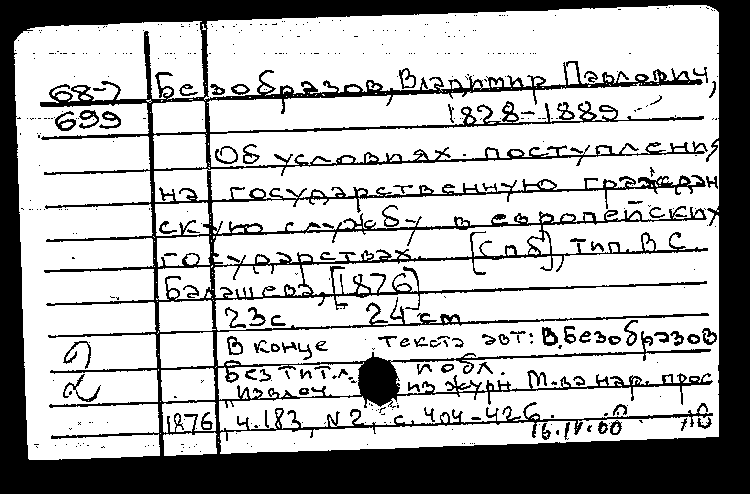 68-7 Безобразов, Владимир Павлович,
699 1828-1889.
Об условиях поступления
на государственную граждан
скую службу в европейских
государствах. [Спб], тип. В С.
Балашева, [1876]
23с. 24 cm
В конце текста авт: В. Безобразов
Без тит. л. и обл.
2 "извлеч. из журн. М-ва нар. прос
1876, ч. 183, N 2, с. 404-426.
16.IV.60